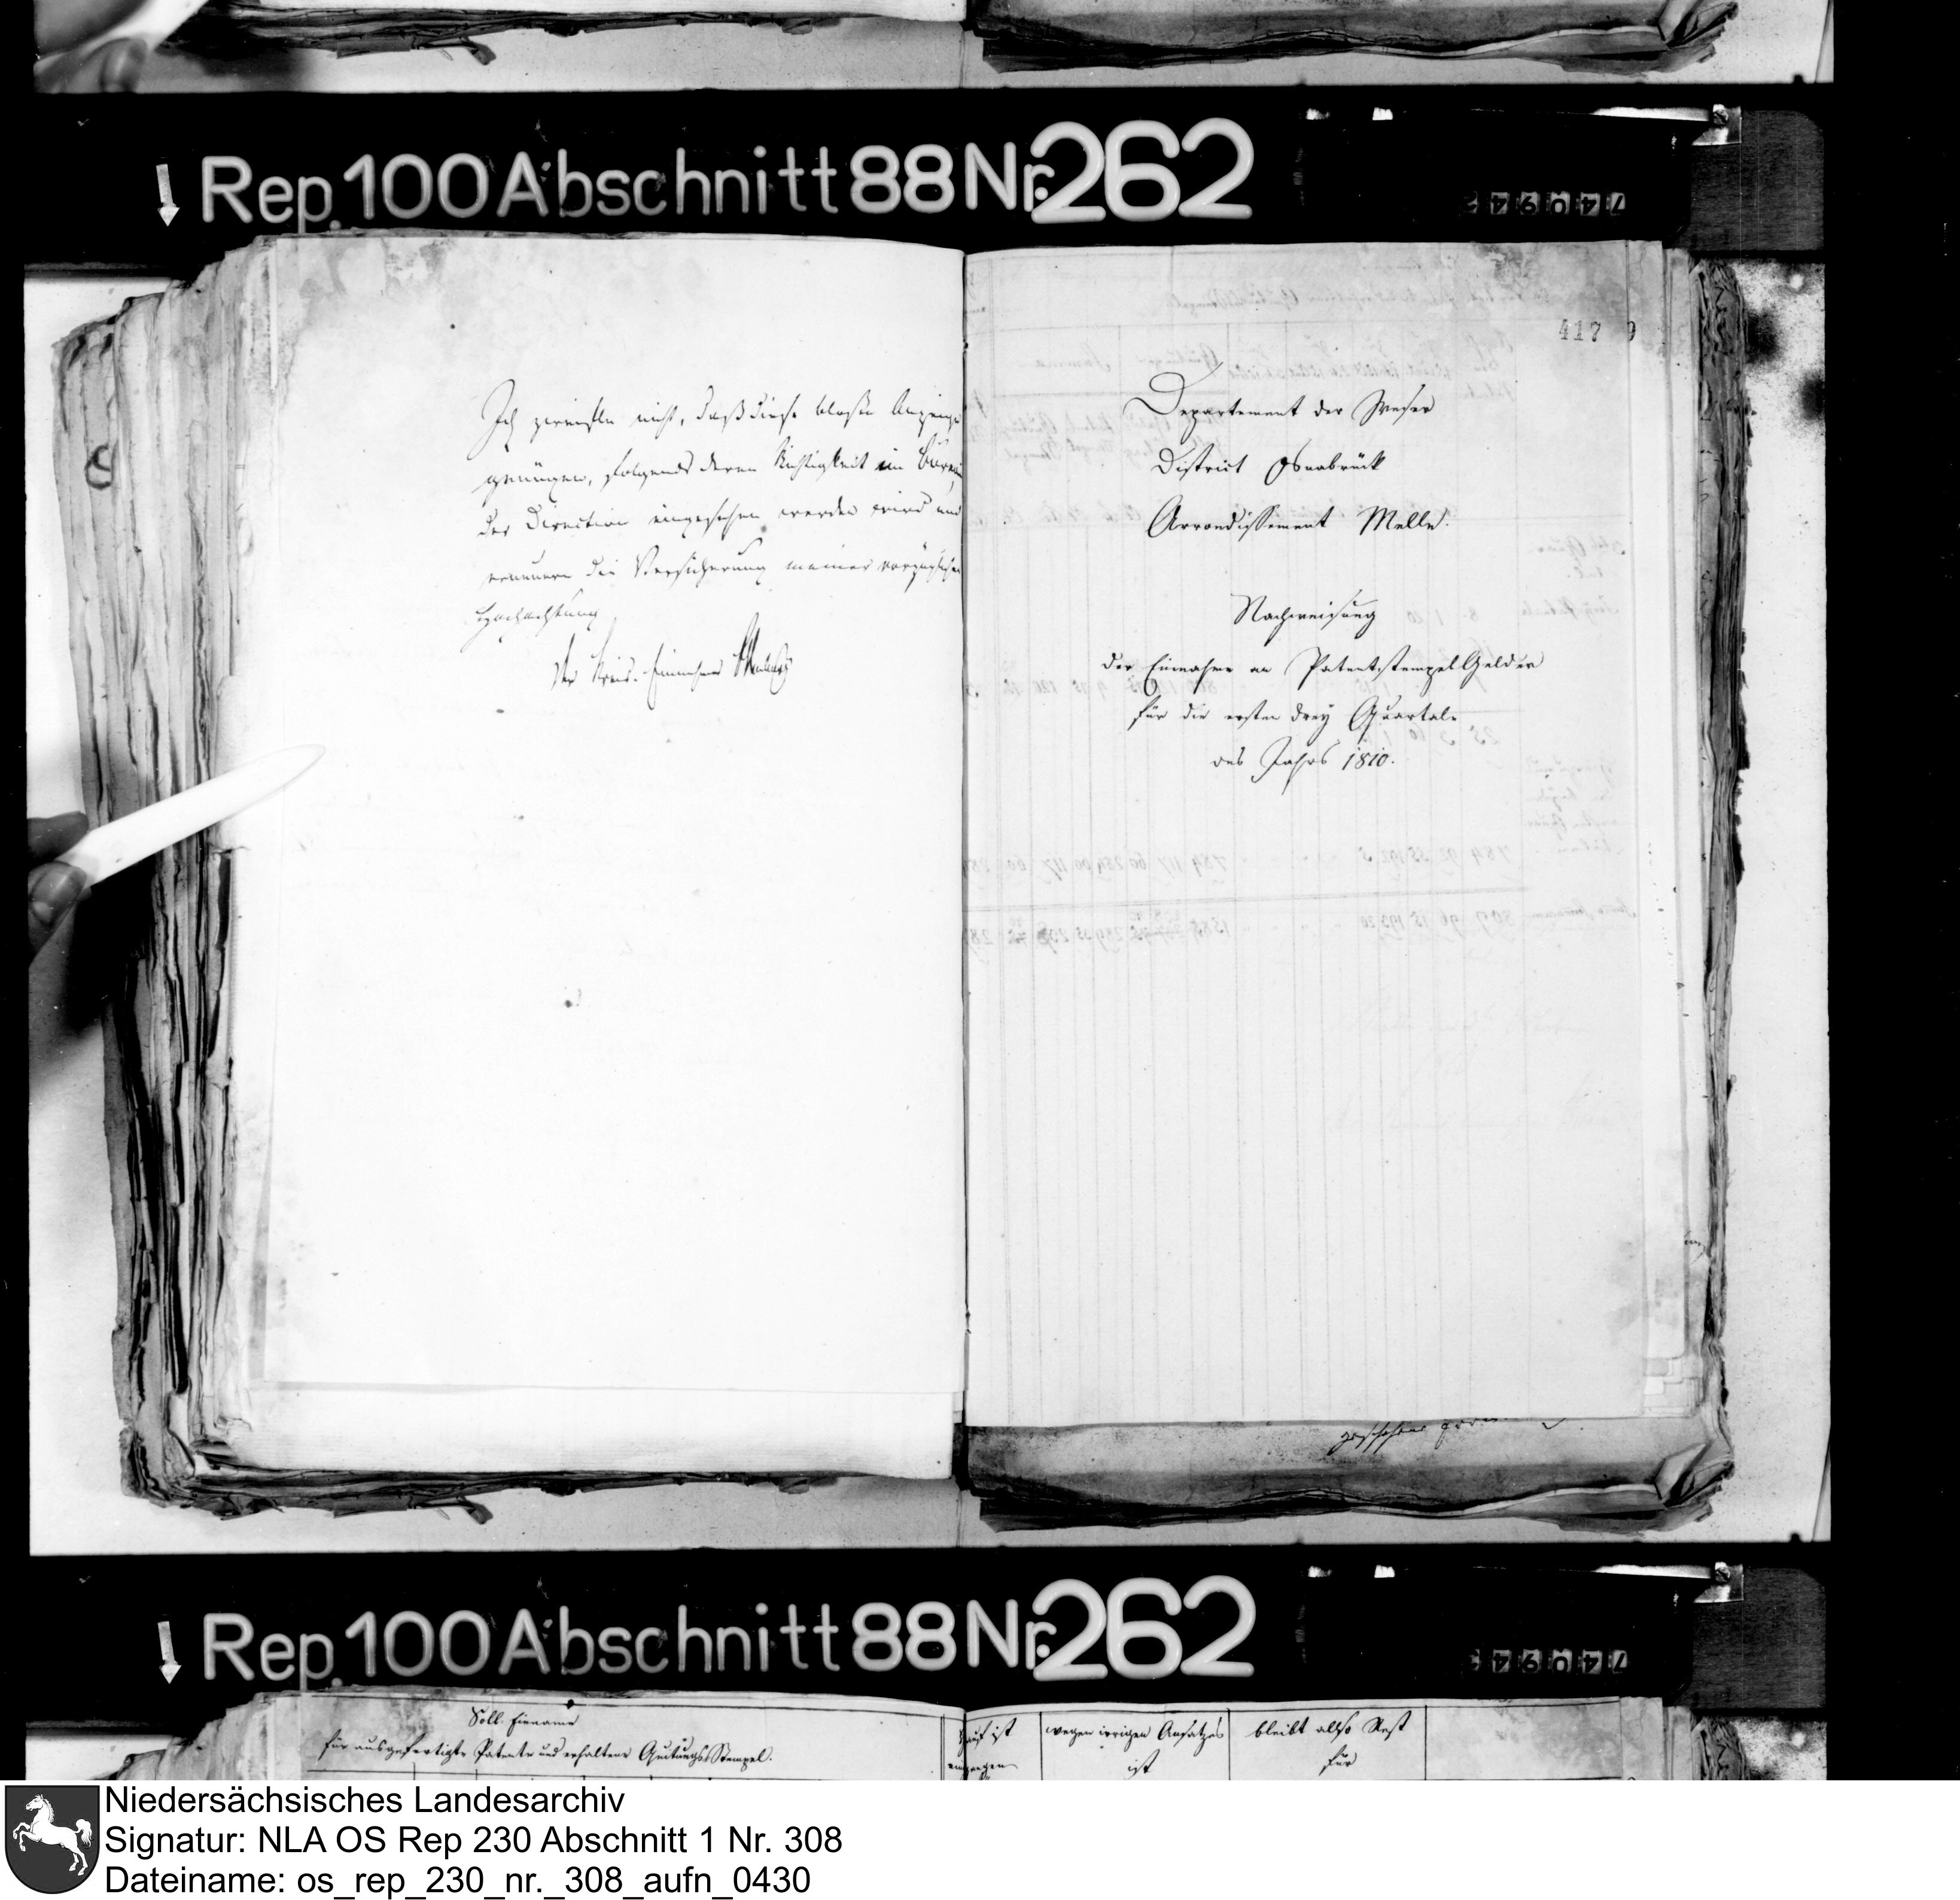 Rep. 100 Abschnitt 88 Nr. 262
Ich zweifle nicht, daß diese bloße Anzeige
genügen, folgends deren Richtigkeit im Büreau
der Direction eingesehen werden wird und
erneuere die Versicherung meiner vorzüglichen
Hochachtung
Der Kreis-Einnehmer
417 9
Departement der Weser
District Osnabrück
Arrondissement Melle.
Nachweisung
der Einnahme an Patentstempel Gelder
für die ersten drey Quartale
des Jahrs 1810.
Rep. 100 Abschnitt 88 Nr. 262
Soll Einname
für ausgefertigte Patente und erhaltene Quitungs Stempel.
Hauf ist
eingegangen
wegen irrigen Ansatzes
ist
bleibt also Rest
für
Niedersächsisches Landesarchiv
Signatur: NLA OS Rep 230 Abschnitt 1 Nr. 308
Dateiname: os_rep_230_nr._308_aufn_0430